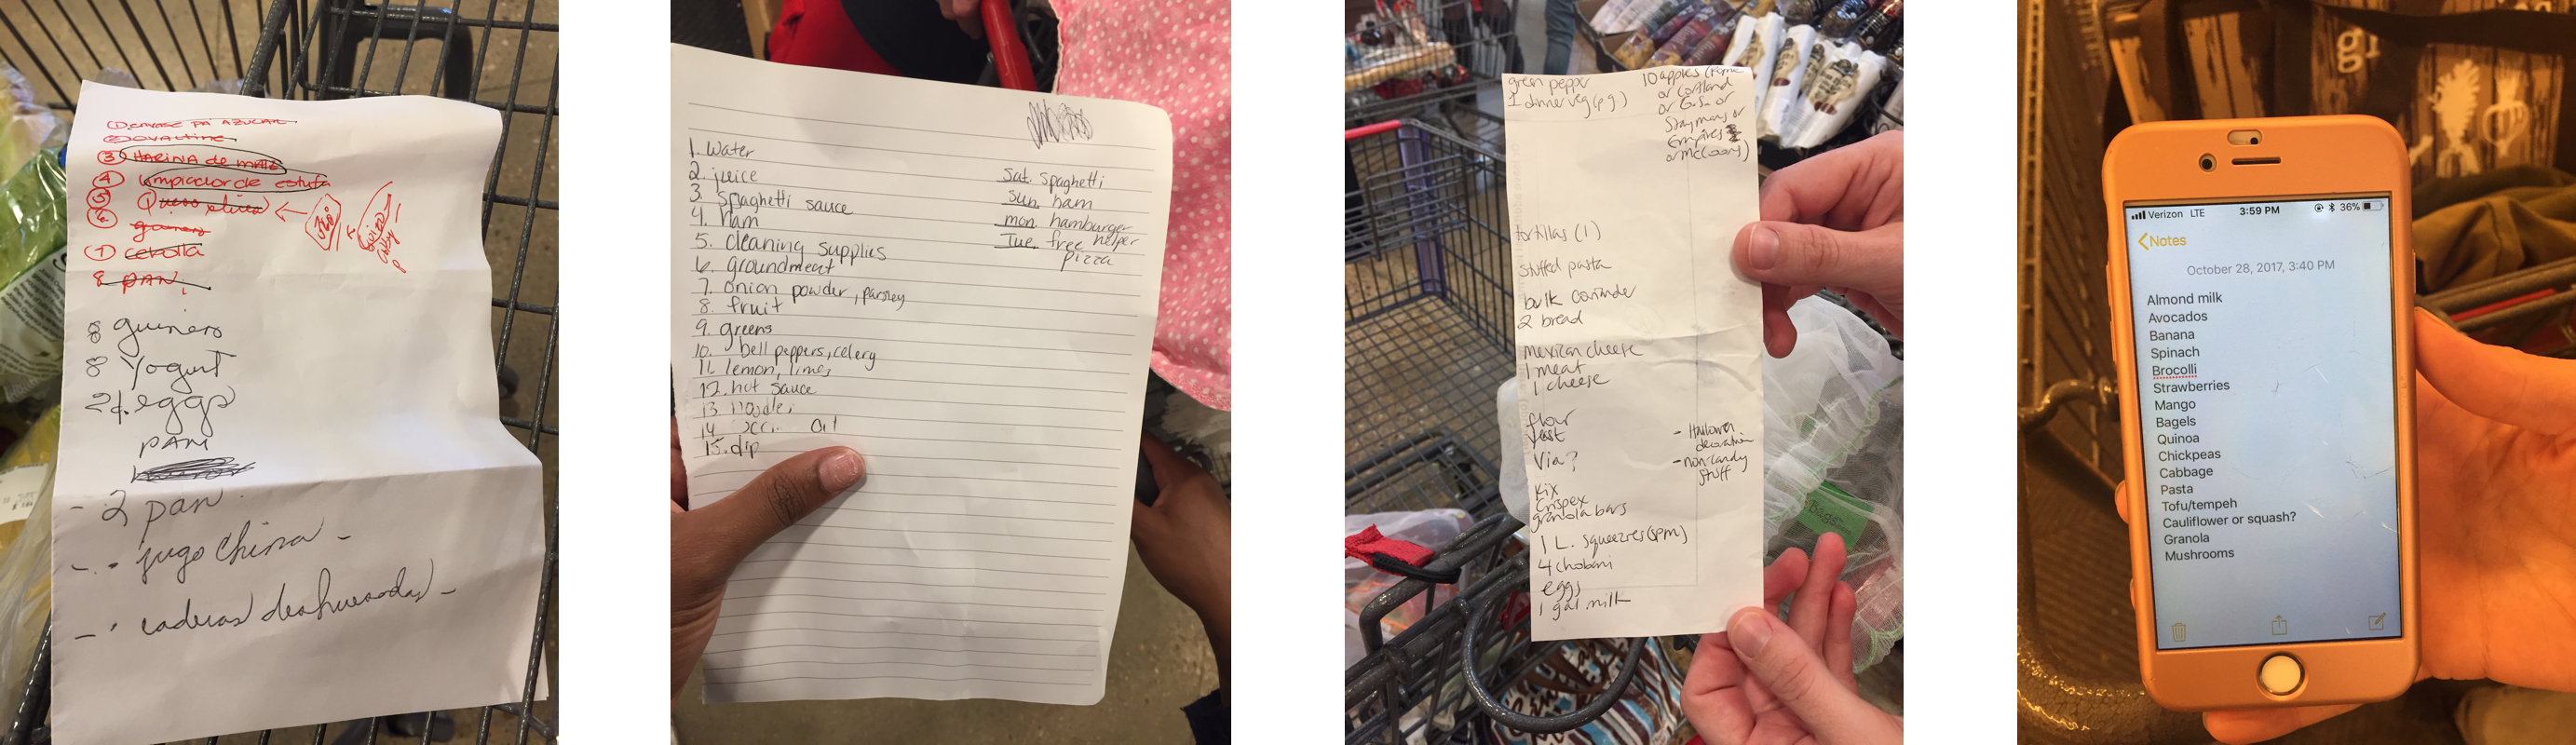 ① envase pa AZUCAR
② OVALTINE
③ HARINA de MAIZ
④ Limpiador de estufa
⑤ Queso
6 guineos
⑦ cebolla
8 PAN
8 guineos
8 Yogurt
eggs
PAN
- 2 pan
- jugo China -
- caderas deshuesadas -
1. Water
2. juice
3. Spaghetti sauce
4. Ham
5. cleaning supplies
6. groundmeat
7. onion powder, parsley
8. fruit
9. greens
10. bell peppers, celery
11. lemon, limes
12. hot sauce
13. noodles
14. Oil
15. dip
Sat. spaghetti
Sun. ham
mon. hamburger helper
Tue. free
pizza
green pepper
1 dinner veg (pg)
10 apples (
or Cortland
or G.S. or
Staymans or
Empires
or McCoons)
tortillas (1)
stuffed pasta
bulk coriander
2 bread
Mexican cheese
1 meat
1 cheese
flour
yeast
Via?
- Halloween
decoration
- non-candy
stuff
Kix
Crispex
granola bars
1 L. squeezres (pm)
4 chobani
eggs
1 gal milk
Verizon LTE 3:59 PM 36%
Notes
October 28, 2017, 3:40 PM
Almond milk
Avocados
Banana
Spinach
Brocolli
Strawberries
Mango
Bagels
Quinoa
Chickpeas
Cabbage
Pasta
Tofu/tempeh
Cauliflower or squash?
Granola
Mushrooms